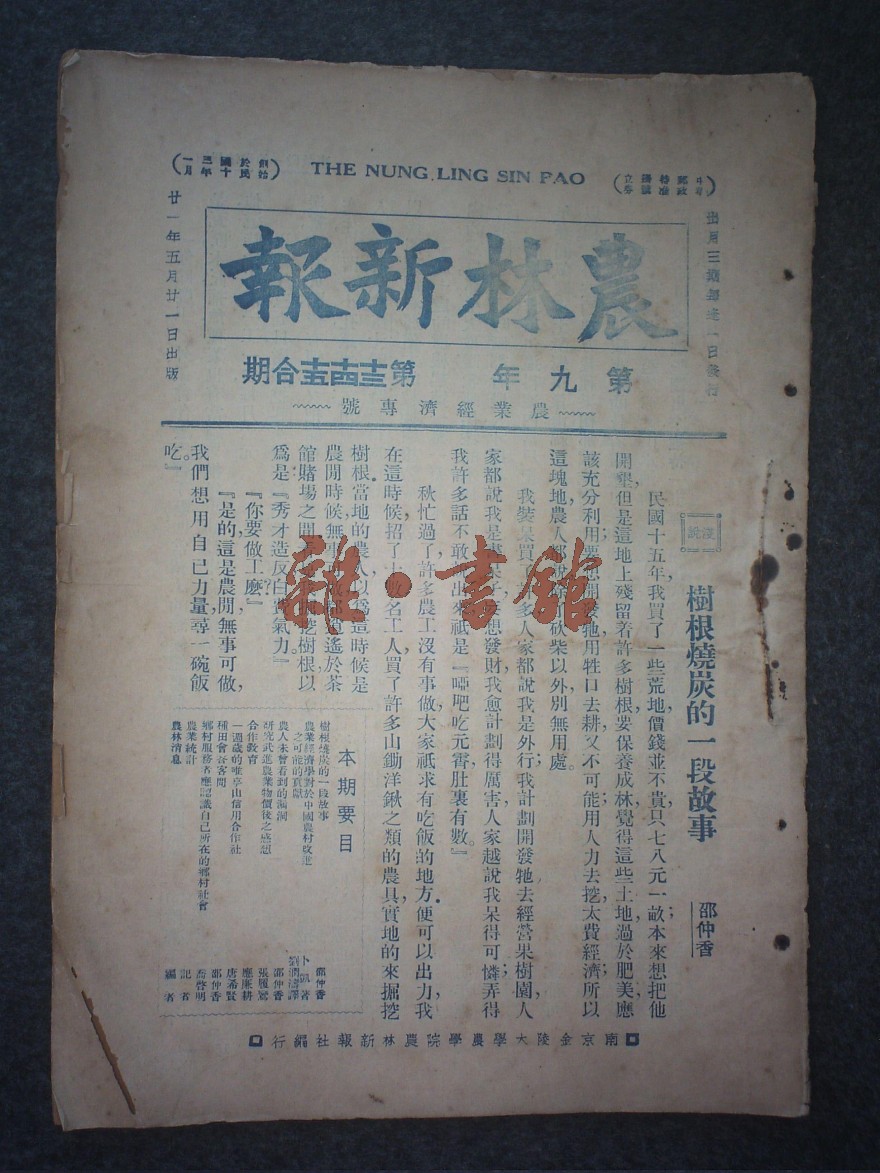 THE NUNG LING SIN PAO
(創始於民國十三年一月)
廿一年五月廿一日出版
農林新報
第九年 第十三十四十五合期
農業經濟專號
漫談
樹根燒炭的一段故事
邵仲香
民國十五年我買了一些荒地,價錢並不貴,只七八元一畝;本來想把他
開墾,但是這地上殘留着許多樹根;要保養成林,覺得這些土地,過於肥美,應
該充分利用;要想開發牠,用牲口去耕,又不可能,用人力去挖,太費經濟;所以
這塊地,農人都說除了砍柴以外別無用處。
我裝呆買了許多,人家都說我是外行;我計劃開發牠去經營果樹園,人
家都說我是書呆子妄想發財;我愈計劃得厲害,人家越說我呆得可憐;弄得
我許多話不敢說出來,祇是『啞吧吃元宵肚裏有數。』
秋忙過了,許多農工沒有事做,大家祇求有吃飯的地方,便可以出力,我
在這時候,招了十數名工人,買了許多山鋤洋鍬之類的農具,實地的來掘挖
樹根。當地的農人,以爲這時候是
農閒時候,無事
館賭場之間,挖樹根,以
爲是『秀才造反白費氣力』
『你要做工麽?』
『是的,這是農閒,無事可做,
我們想用自己力量尋一碗飯
吃。』
本期要目
樹根燒炭的一段故事 邵仲香
農業經濟學對於中國農村改進之可能的貢獻 卜凱著 劉潤濤譯
農人未曾看到的漏洞 邵仲香
研究武進農業物價後之感想 張履鸞
合作教育 應廉耕
一週歲的唯亭山信用合作社 唐希賢
種田會答客問 邵仲香
鄉村服務者應認識自己所在的鄉村社會 喬啓明
農業統計 記者
農林消息 編者
南京金陵大學農學院農林新報社編行
雜·書館